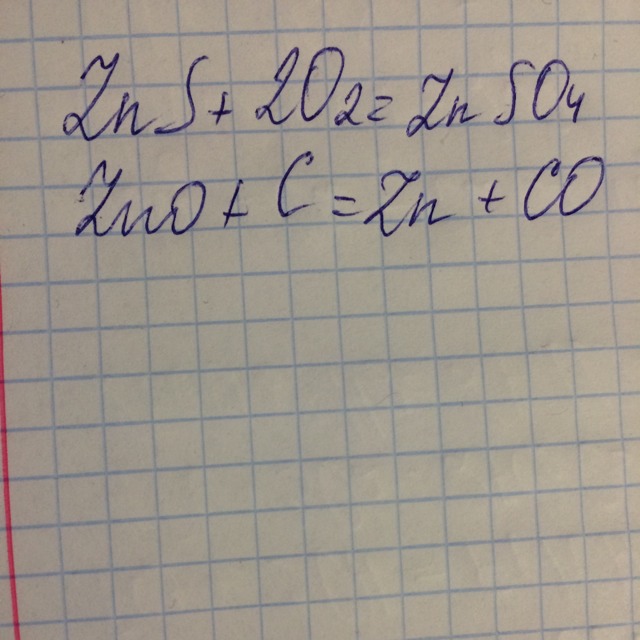 ZnS + 2O2 = ZnSO4
ZnO + C = Zn + CO